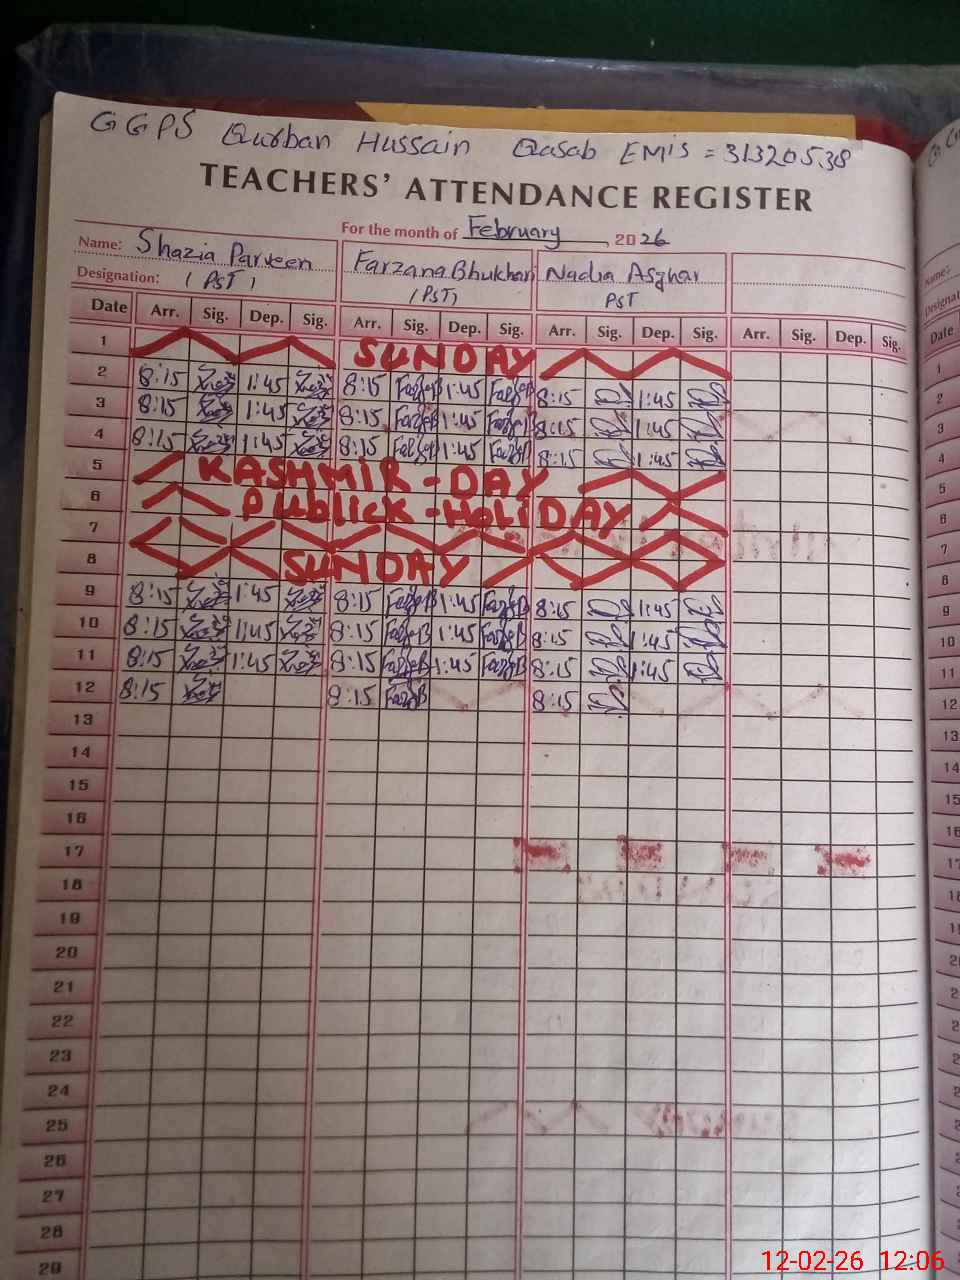 GGPS Qurban Hussain Qasab EMIS = 31320538
TEACHERS' ATTENDANCE REGISTER
For the month of February 2026
Name: Shazia Parveen Farzana Bhukhari Nadia Asghar
Designation: (PST) (PST) PST
Date Arr. Sig. Dep. Sig. Arr. Sig. Dep. Sig. Arr. Sig. Dep. Sig. Arr. Sig. Dep. Sig.
1 SUNDAY
2 8:15 1:45 8:15 1:45 8:15 1:45
3 8:15 1:45 8:15 1:45 8:15 1:45
4 8:15 1:45 8:15 1:45 8:15 1:45
5 KASHMIR-DAY
6 Publick-HoliDAY
7
8 SUNDAY
9 8:15 1:45 8:15 1:45 8:15 1:45
10 8:15 1:45 8:15 1:45 8:15 1:45
11 8:15 1:45 8:15 1:45 8:15 1:45
12 8:15 8:15 8:15
13
14
15
16
17
18
19
20
21
22
23
24
25
26
27
28
29
Name:
Date
1
2
3
4
5
6
7
8
9
10
11
12
13
14
15
16
12-02-26 12:06